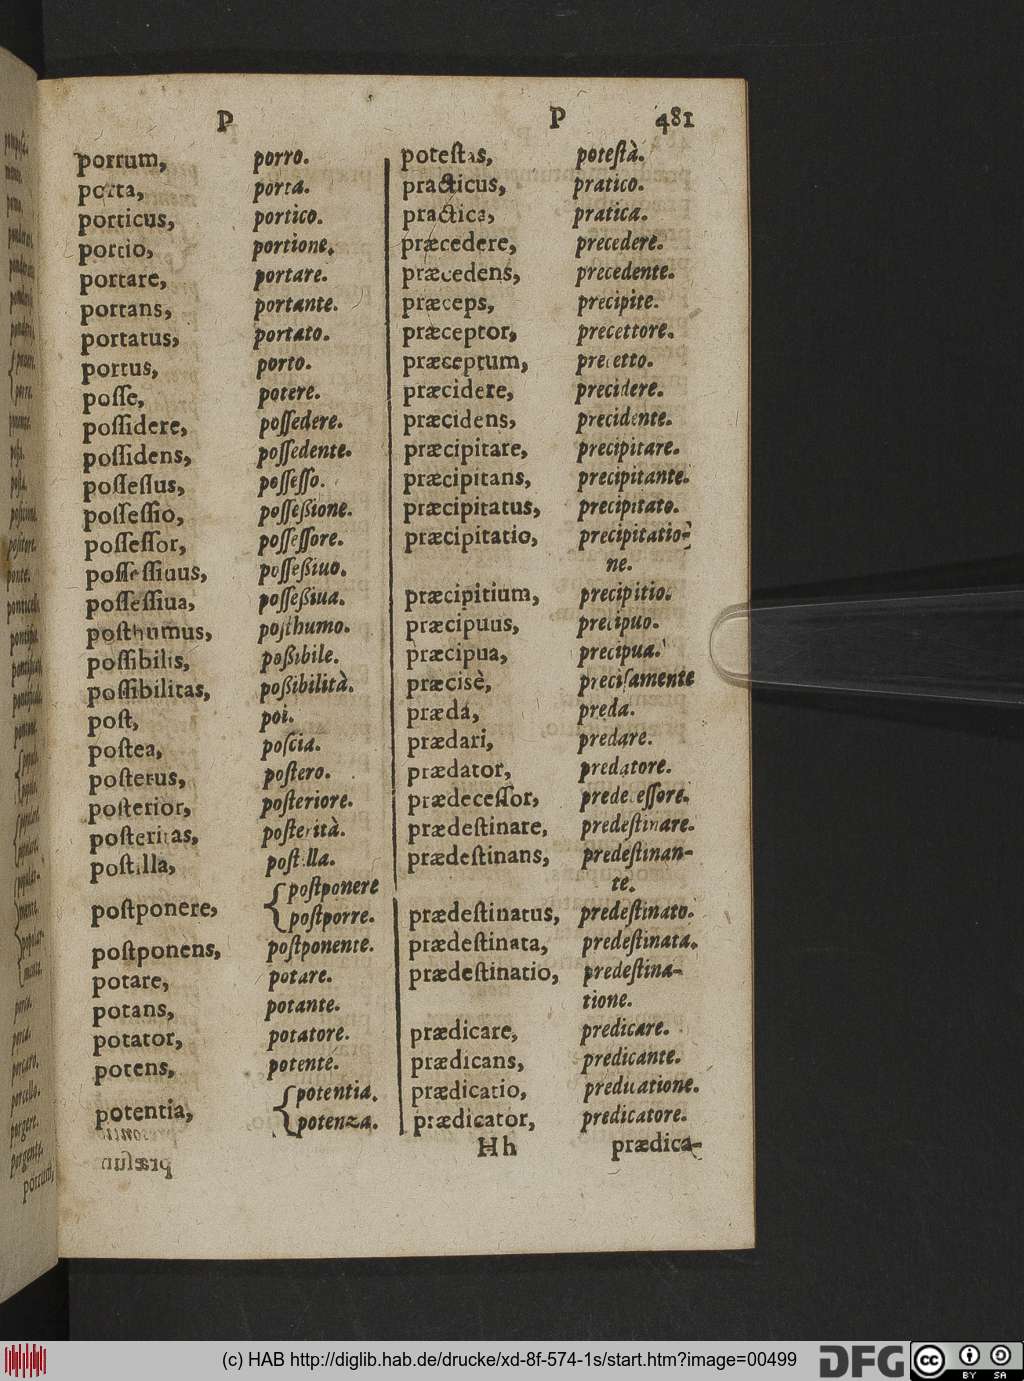 P
P 481
porrum, porro.
porta, porta.
porticus, portico.
portio, portione.
portare, portare.
portans, portante.
portatus, portato.
portus, porto.
poſſe, potere.
poſſidere, poſſedere.
poſſidens, poſſedente.
poſſeſſus, poſſeſſo.
poſſeſſio, poſſeßione.
poſſeſſor, poſſeſſore.
poſſeſſiuus, poſſeßiuo.
poſſeſſiua, poſſeßiua.
poſthumus, poſthumo.
poſſibilis, poßibile.
poſſibilitas, poßibilità.
poſt, poi.
poſtea, poſcia.
poſterus, poſtero.
poſterior, poſteriore.
poſteritas, poſterità.
poſtilla, poſtilla.
poſtponere, {poſtponere
{poſtporre.
poſtponens, poſtponente.
potare, potare.
potans, potante.
potator, potatore.
potens, potente.
potentia, {potentia.
{potenza.
poteſtas, poteſtà.
practicus, pratico.
practica, pratica.
præcedere, precedere.
præcedens, precedente.
præceps, precipite.
præceptor, precettore.
præceptum, precetto.
præcidere, precidere.
præcidens, precidente.
præcipitare, precipitare.
præcipitans, precipitante.
præcipitatus, precipitato.
præcipitatio, precipitatio-
ne.
præcipitium, precipitio.
præcipuus, precipuo.
præcipua, precipua.
præcisè, preciſamente
præda, preda.
prædari, predare.
prædator, predatore.
prædeceſſor, predeceſſore.
prædeſtinare, predeſtinare.
prædeſtinans, predeſtinan-
te.
prædeſtinatus, predeſtinato.
prædeſtinata, predeſtinata.
prædeſtinatio, predeſtina-
tione.
prædicare, predicare.
prædicans, predicante.
prædicatio, predicatione.
prædicator, predicatore.
Hh prædica-
(c) HAB http://diglib.hab.de/drucke/xd-8f-574-1s/start.htm?image=00499
DFG
cc BY SA